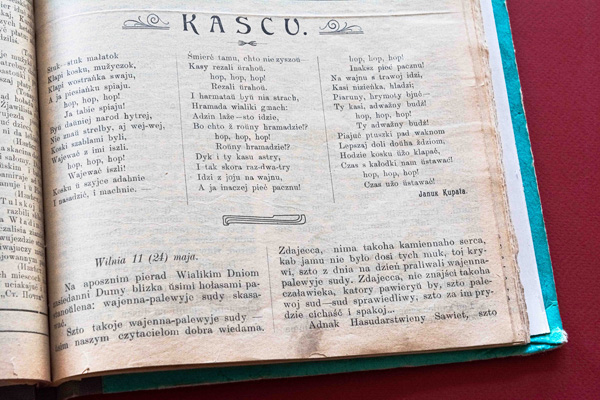 KASCU.
Stuk-stuk małatok
Klapi kosku, mużyczok,
Klapi wostrańka swaju,
A ja piesiańku spiaju.
hop, hop, hop!
Ja tabie spiaju!
Byŭ daŭniej narod hytrej,
Nie znaŭ strelby, aj wej-wej,
Koski szablami byli,
Wajewać z imi iszli.
hop, hop, hop!
Wajewać iszli!
Kosku ŭ szyjce adahnie
I nasadzić, i machnie. —
Śmierć tamu, chto nie zyszoŭ—
Kasy rezali ŭrahoŭ.
hop, hop, hop!
Rezali ŭrahoŭ.
I harmataŭ byŭ nia strach,
Hramada wieliki gmach:
Adzin laże—sto idzie,
Bo chto ż roŭny hramadzie!?
hop, hop, hop!
Roŭny hramadzie!?
Dyk i ty kasu astry,
I tak skora raz-dwa-try
Idzi z joju na wajnu,
A ja inaczej pieć pacznu!
hop, hop, hop!
Inaksz pieć pacznu!
Na wajnu s trawoj idzi,
Kasi niziеńka, hladzi;
Piaruny, hrymoty bjuć—
Ty kasi, adważny budź!
hop, hop, hop!
Ty adważny budź!
Piajuć ptuszki pad waknom
Lepszaj doli douha ждziom;
Hodzie kosku ŭżo klapać,
Czas s kałodki nam ŭstawać!
hop, hop, hop!
Czas użo ŭstawać!
Janus Kupała.
Wilnia 11 (24) maja.
Na aposznim pierad Wialikim Dniom
pasiedanni Dumy blizka ŭsimi hołasami pa-
stanoŭlena: wajenna-palewyje sudy skasa-
wać.
Szto takoje wajenna-palewyje sudy —
usim naszym czytaciełom dobra wiedama.
Zdajecca, nima takoha kamiennaho serca,
kab jamu nie było dosi tych muk, toj kry-
wi, szto z dnia na dzień praliwali wajenna-
palewyje sudy. Zdajecca, nie znajści takoha
czaławieka, katory pawieryŭ by, szto pale-
woj sud—sud sprawiedliwy, szto za im pry-
dzie cichaść i spakoj...
Adnak Hasudarstwieny Sawiet, szto